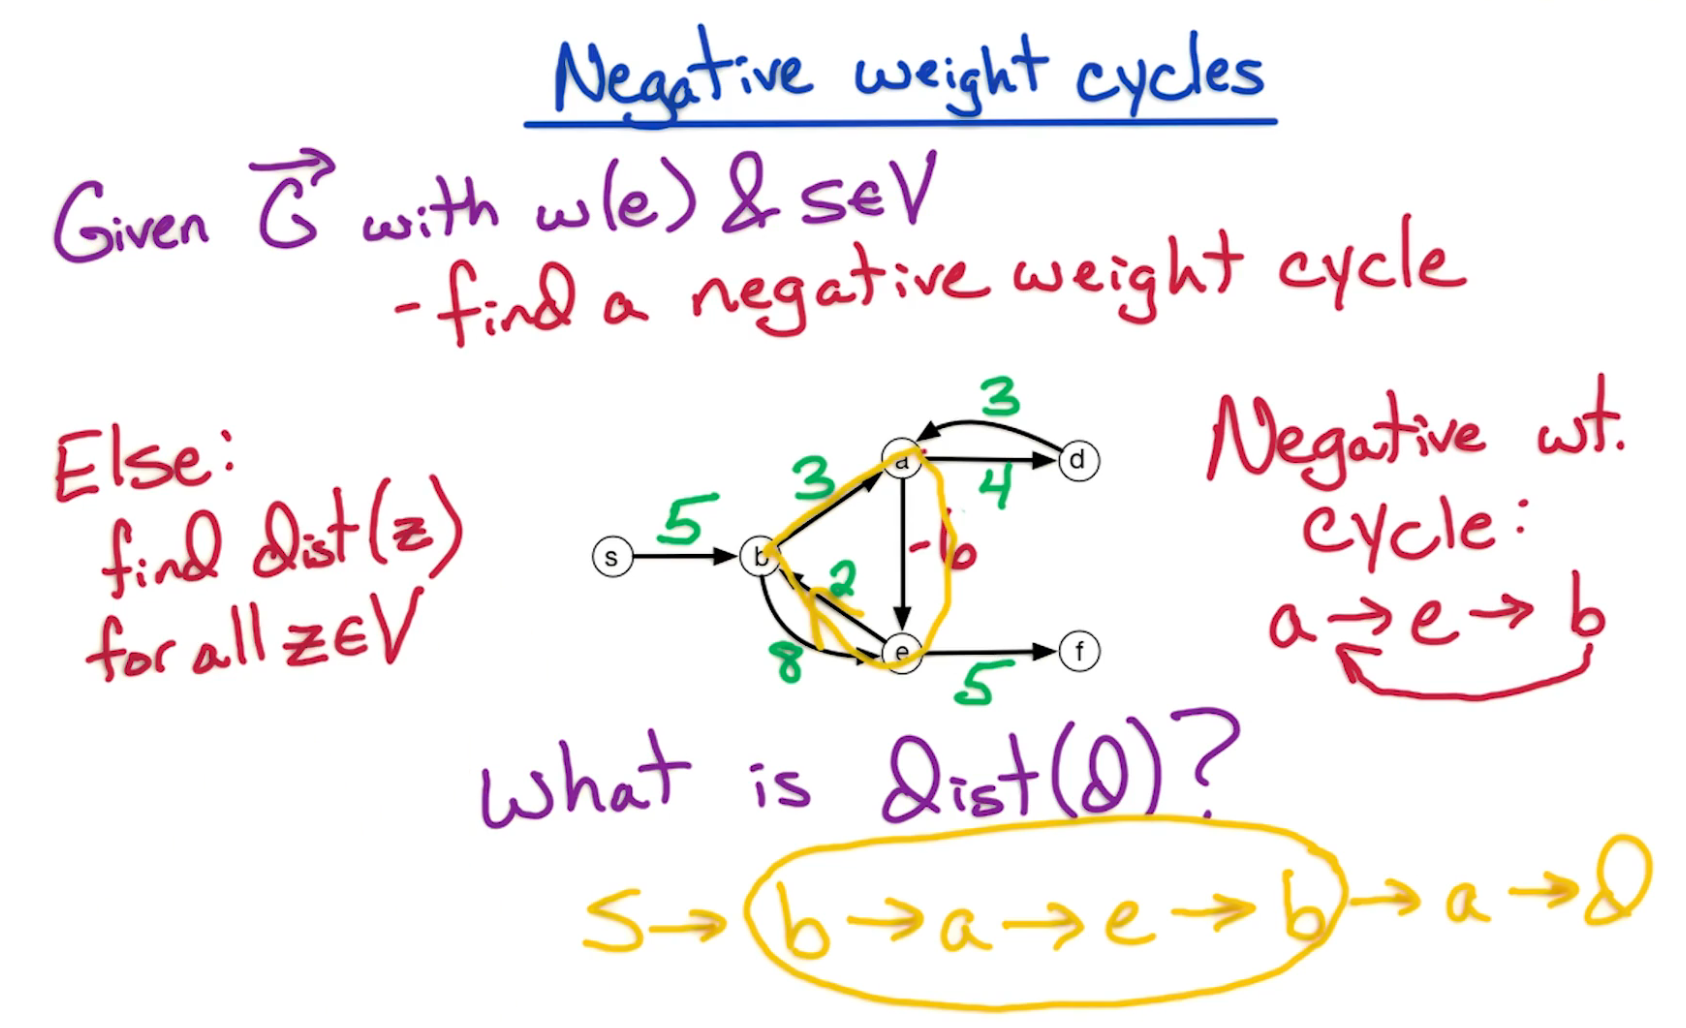 Negative weight cycles
Given G with w(e) & s∈V
- find a negative weight cycle
Else:
find dist(z)
for all z∈V
3
a
d
3
4
5
s
b
-6
2
8
e
f
5
Negative wt.
cycle:
a → e → b
What is dist(d)?
S → b → a → e → b → a → d